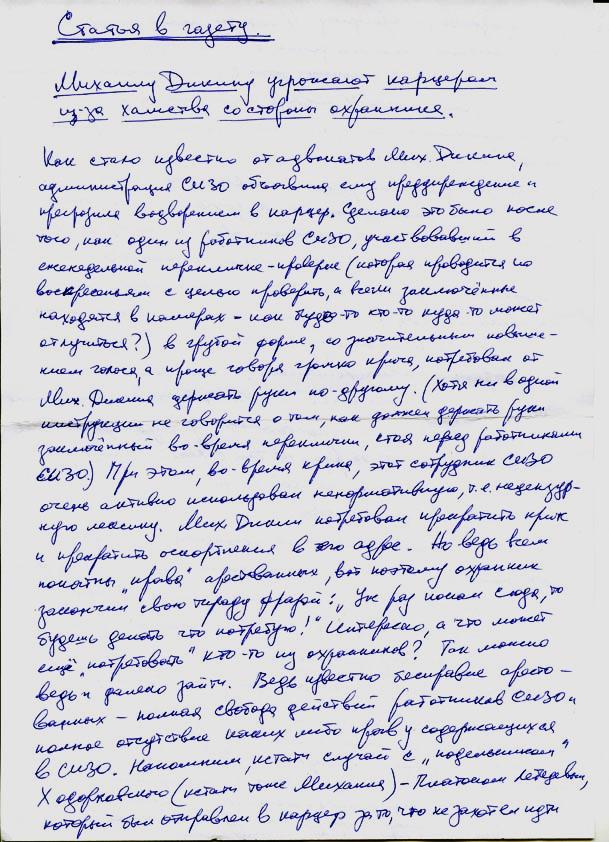 Статья в газету.
Михаилу Дикину угрожают карцером
из-за хамства со стороны охранника.
Как стало известно от адвокатов Мих. Дикина,
администрация СИЗО объявила ему предупреждение и
пригрозила водворением в карцер. Сделано это было после
того, как один из работников СИЗО, участвовавший в
еженедельной перекличке-проверке (которая проводится по
воскресеньям с целью проверить, а всели заключённые
находятся в камерах – как будто кто-то куда-то может
отлучиться?) в грубой форме, со значительным повыше-
нием голоса, а проще говоря громко крича, потребовал от
Мих. Дикина держать руки по-другому. (Хотя ни в одной
инструкции не говорится о том, как должен держать руки
заключённый во-время переклички, стоя перед работниками
СИЗО.) При этом, во-время крика, этот сотрудник СИЗО
очень активно использовал ненормативную, т.е. нецензур-
ную лексику. Мих Дикин потребовал прекратить крик
и прекратить оскорбления в его адрес. Но ведь всем
понятны "права" арестованных, вот поэтому охранник
закончил свою тираду фразой: „Уж раз попал сюда, то
будешь делать что потребую!" Интересно, а что может
ещё "потребовать" кто-то из охранников? Так можно
ведь и далеко зайти. Ведь известно бесправие аресто-
ванных – полная свобода действий работников СИЗО и
полное отсутствие каких либо прав у содержащихся
в СИЗО. Напомним, кстати случай с „подельником"
Ходорковского (кстати тоже Михаила) – Платоном Лебедевым,
который был отправлен в карцер за то, что не захотел идти